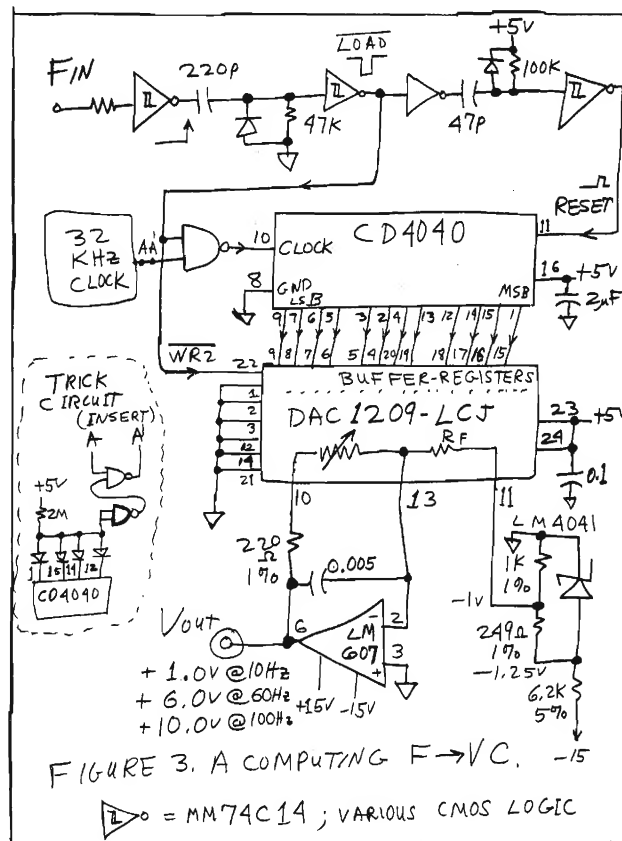 LOAD
+5V
FIN
220P
100K
47K
47P
RESET
32
KHz
CLOCK
AA'
10
CLOCK
CD4040
11
8
GND
LSB
MSB
16
+5V
2µF
9 7 6 5 3 2 4 13 12 14 15 1
9 8 7 6 5 4 20 19 18 17 16 15
WR2
22
BUFFER-REGISTERS
1
2
3
12
14
21
DAC1209-LCJ
23
+5V
24
0.1
RF
10
13
11
TRICK
CIRCUIT
(INSERT)
A
A'
+5V
2M
1 15 14 12
CD4040
220
Ω
1%
0.005
LM4041
1K
1%
-1V
249Ω
1%
-1.25V
6.2K
5%
-15
Vout
6
2
-
LM
607
3
+
+15V
-15V
+ 1.0V @ 10Hz
+ 6.0V @ 60Hz
+ 10.0V @ 100Hz
FIGURE 3. A COMPUTING F→VC.
= MM74C14; VARIOUS CMOS LOGIC